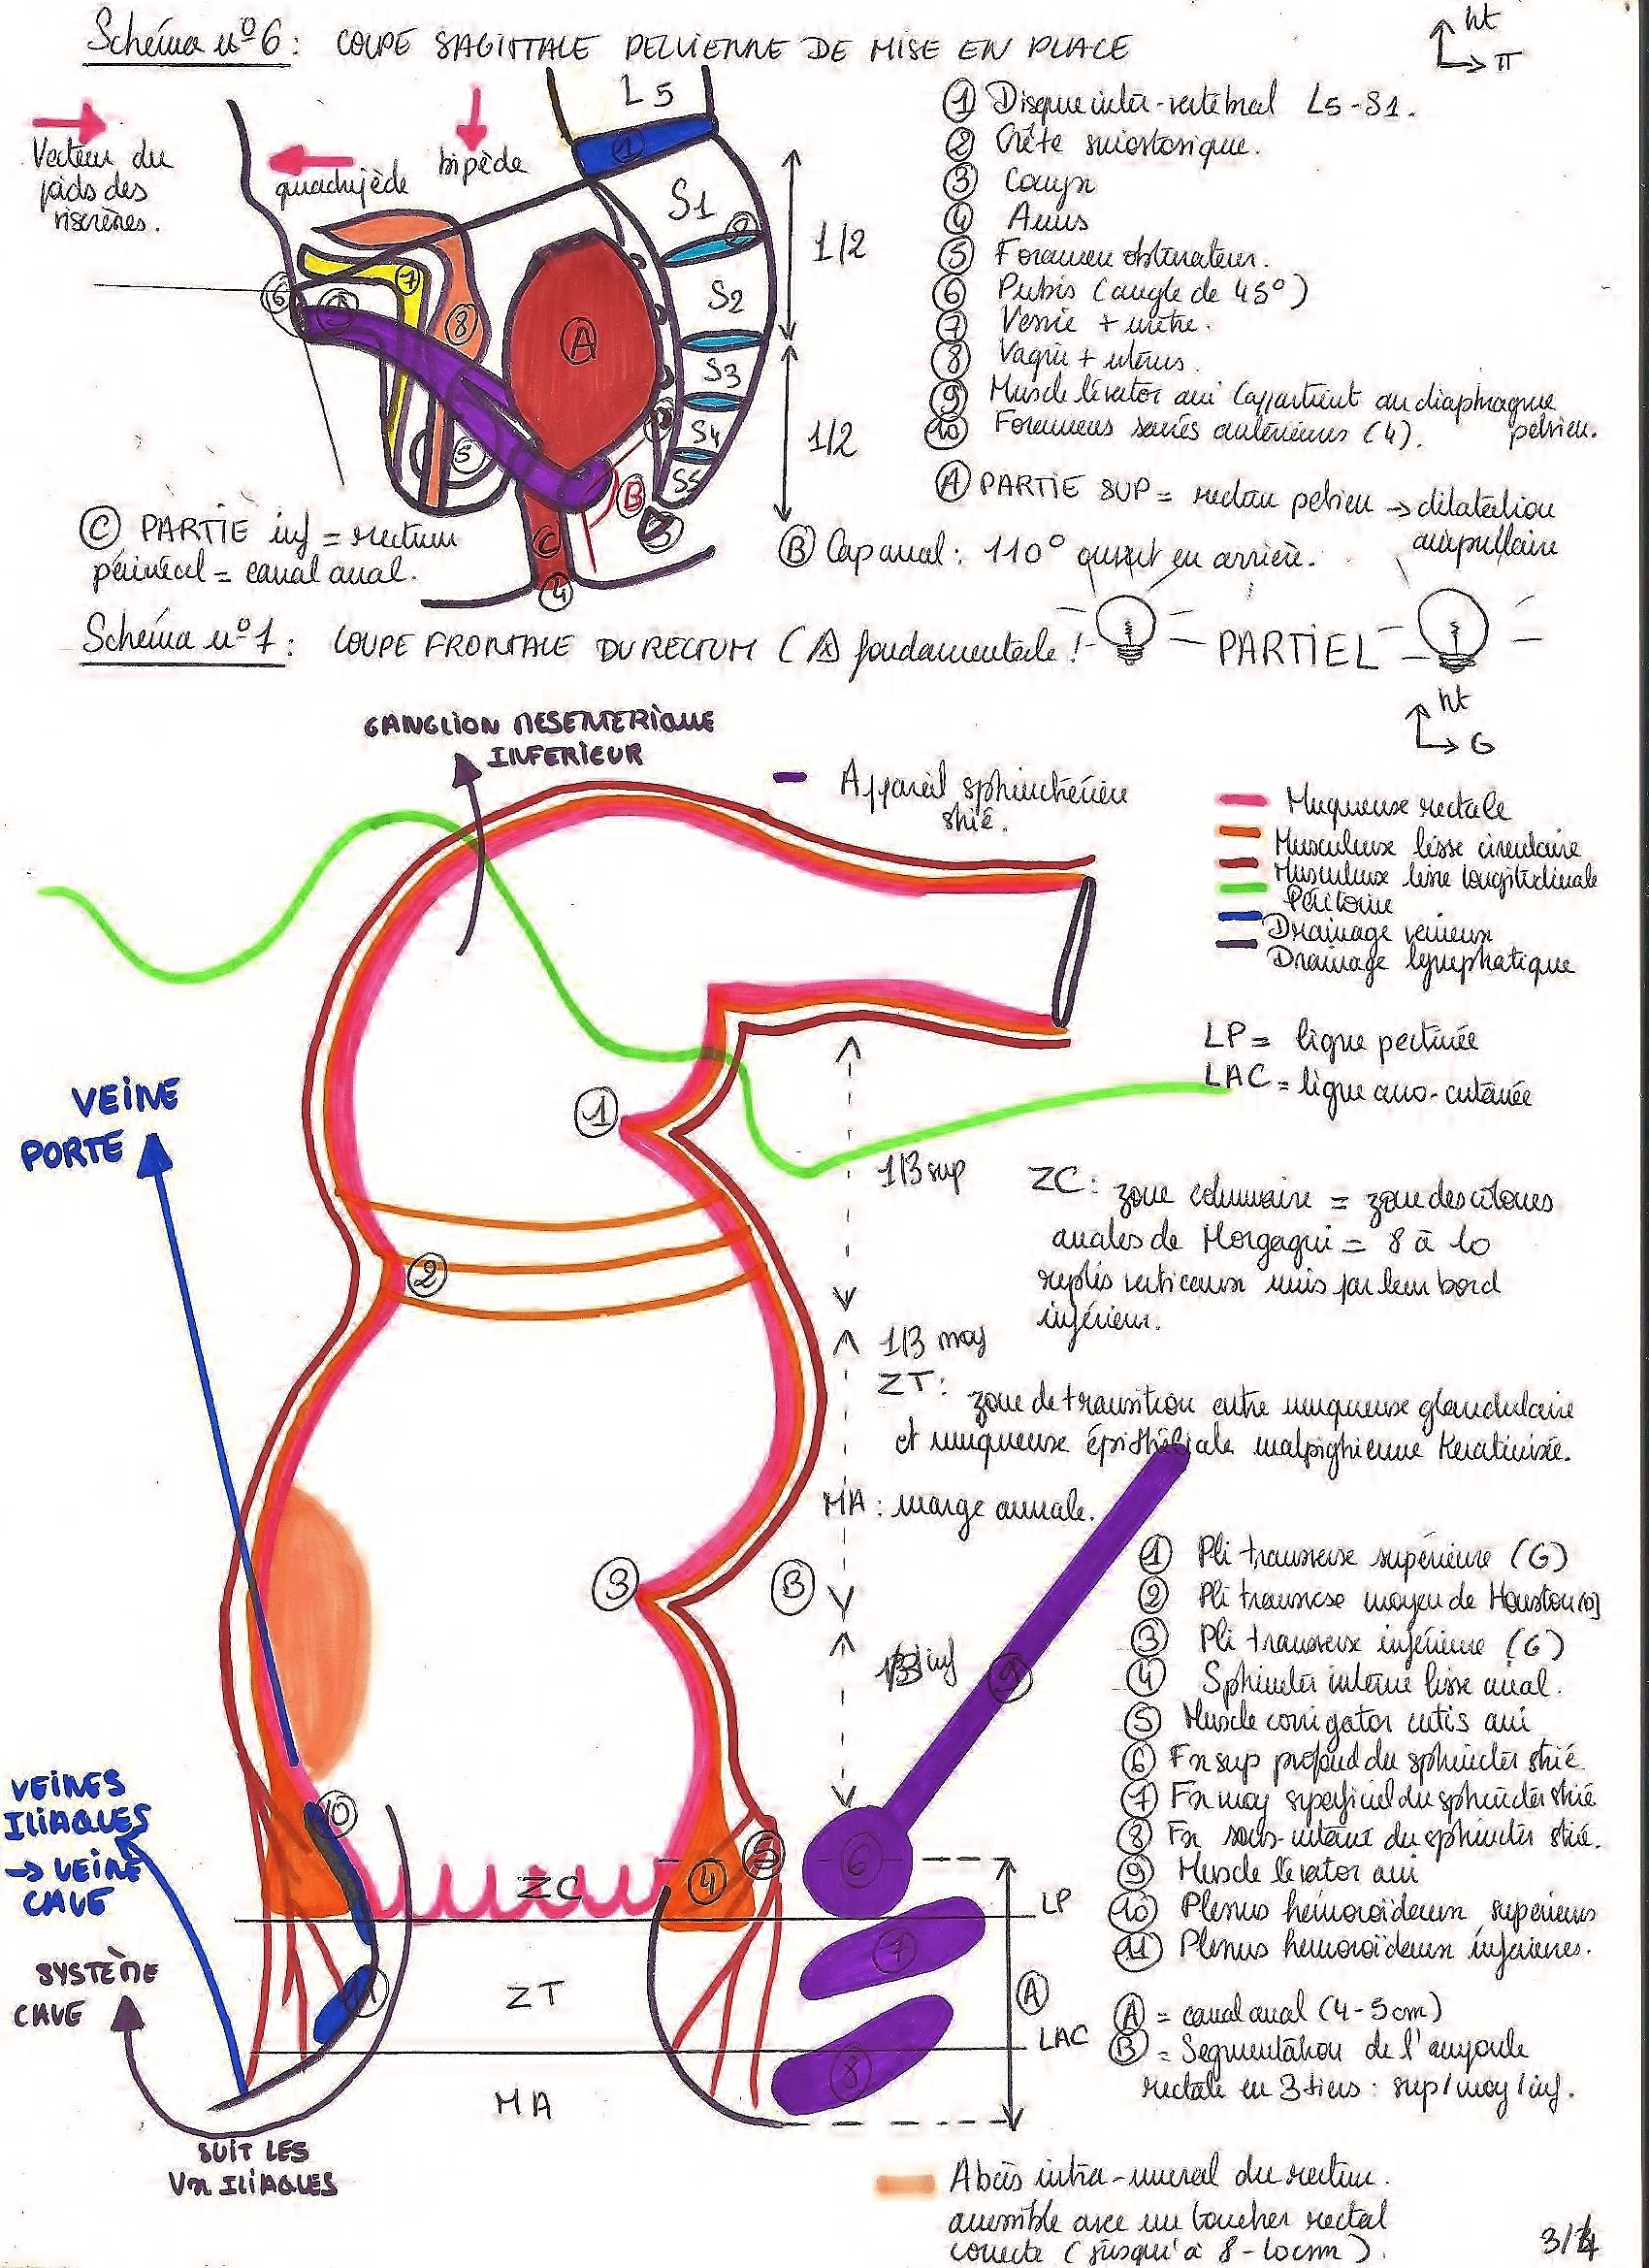 Schéma n°6 : COUPE SAGITTALE PELVIENNE DE MISE EN PLACE
ht
π
Vecteur du
poids des
viscères.
quadrupède
bipède
L5
1
S1
2
S2
S3
S4
S5
1/2
1/2
6
5
7
8
A
5
B
3
C
4
① Disque inter-vertébral L5-S1.
②
③ Coccyx
④ Anus
⑤ Foramen obturateur.
⑥ Pubis (angle de 45°)
⑦ Vessie + urètre.
⑧ Vagin + utérus.
⑨ Muscle lévator ani (appartient au diaphragme
pelvien.
⑩ Foramens sacrés antérieures (4).
Ⓐ PARTIE SUP = rectum pelvien → dilatation
ampullaire
Ⓑ Cap anal : 110° ouvert en arrière.
Ⓒ PARTIE inf = rectum
périnéal = canal anal.
Schéma n°7 : COUPE FRONTALE DU RECTUM (⚠ fondamentale !
PARTIEL
ht
G
GANGLION MESENTERIQUE
INFERIEUR
Appareil sphinctérien
strié.
Muqueuse rectale
Musculeux lisse circulaire
Musculeux lisse longitudinale
Péritoine
Drainage veineux
Drainage lymphatique
LP = ligne pectinée
LAC = ligne ano-cutanée
VEINE
PORTE
1
2
3
1/3 sup
ZC : zone columnaire = zone des colonnes
anales de Morgagni = 8 à 10
replis verticaux unis par leur bord
inférieur.
1/3 moy
ZT : zone de transition entre muqueuse glandulaire
et muqueuse épithéliale malpighienne Keratinisée.
MA : marge annale.
B
1/3 inf
9
① Pli transverse supérieure (G)
② Pli transverse moyen de Houston (D)
③ Pli transverse inférieure (G)
④ Sphincter interne lisse anal.
⑤ Muscle corrigator cutis ani
⑥ Fx sup profond du sphincter strié
⑦ Fx moy superficiel du sphincter strié
⑧ Fx sous-cutané du sphincter strié.
⑨ Muscle lévator ani
⑩ Plexus hémoroïdeux supérieurs
⑪ Plexus hémoroïdeux inférieures.
VEINES
ILIAQUES
→ VEINE
CAVE
10
ZC
4
5
6
LP
7
SYSTÈME
CAVE
11
ZT
A
LAC
8
MA
SUIT LES
Vx ILIAQUES
Ⓐ = canal anal (4-5cm)
Ⓑ = Segmentation de l'ampoule
rectale en 3 tiers : sup/moy/inf.
Abcès intra-mural du rectum.
accessible avec un toucher rectal
correcte (jusqu'à 8-10cm).